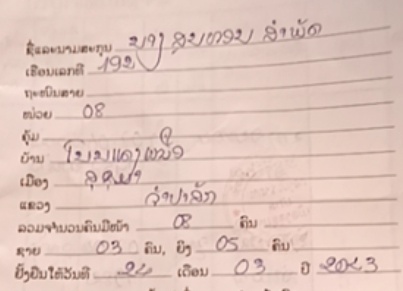 ຊື່ແລະນາມສະກຸນ ນາງ ສຸນທອນ ສຳພັດ
ເຮືອນເລກທີ 192
ຖະໜົນສາຍ
ໜ່ວຍ 08
ຄຸ້ມ
ບ້ານ ໂນນແດງເໜືອ
ເມືອງ ສຸຂຸມາ
ແຂວງ ຈຳປາສັກ
ລວມຈຳນວນຄົນມີໜ້າ 08 ຄົນ
ຊາຍ 03 ຄົນ, ຍິງ 05 ຄົນ
ຢັ້ງຢືນໃຫ້ວັນທີ 24 ເດືອນ 03 ປີ 2023